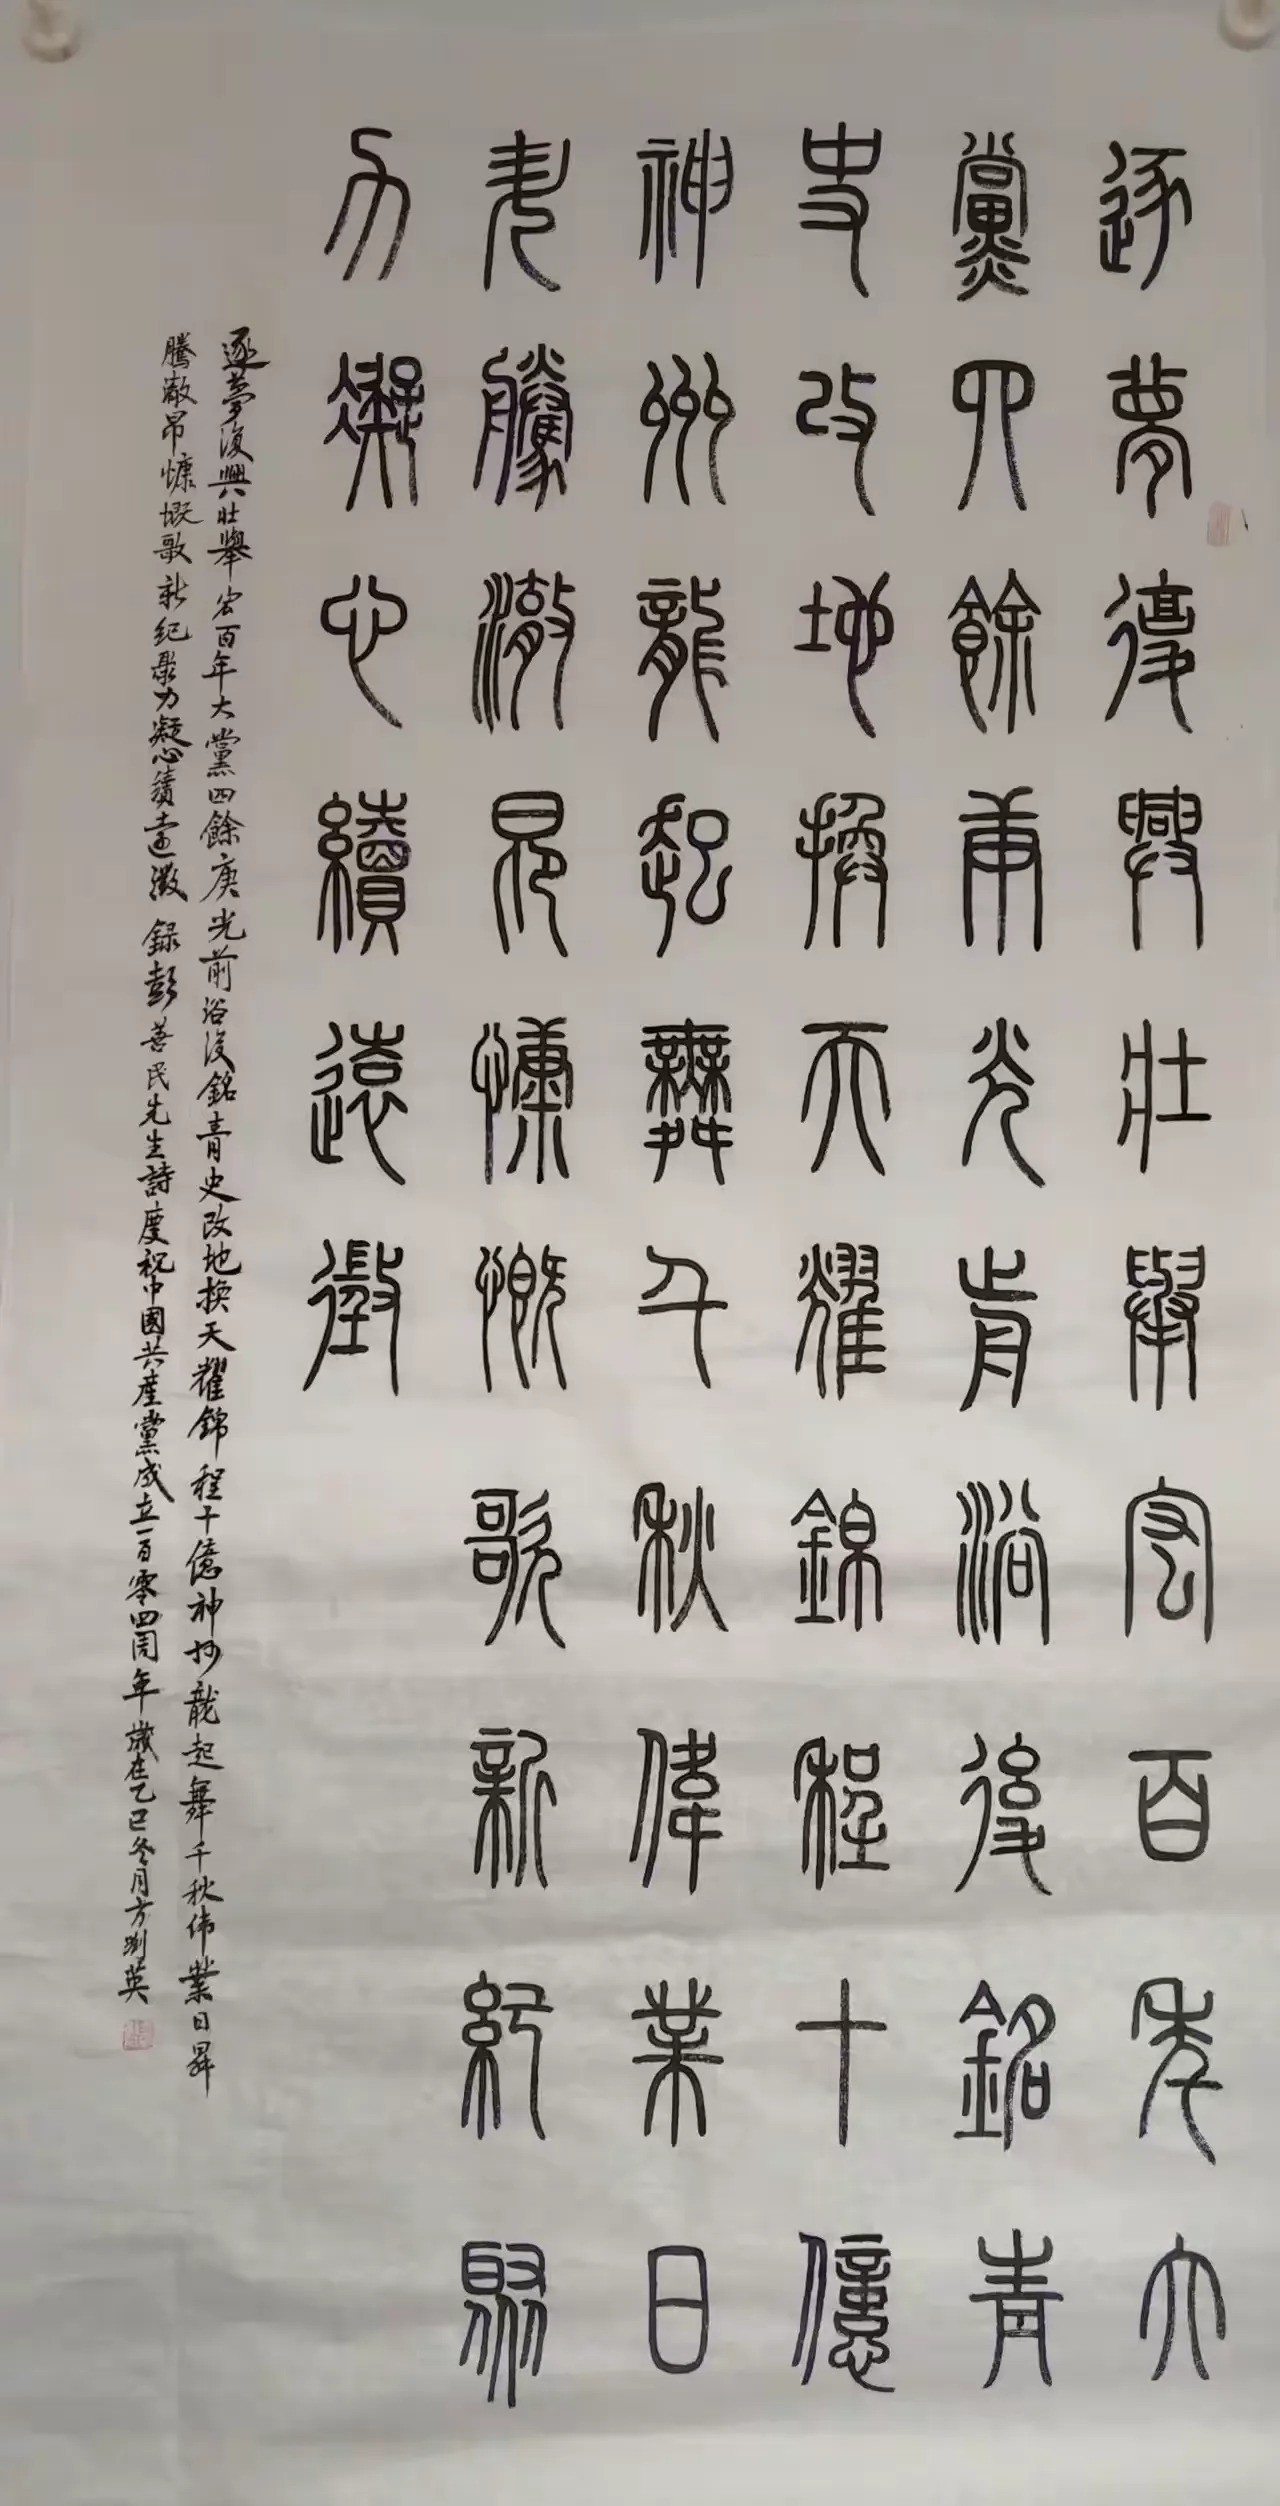 逐夢復興壯舉宏百年大
黨四餘庚光前浴後銘青
史改地換天耀錦程十億
神州龍起舞千秋偉業日
昇騰激昂慷慨歌新紀聚
力凝心續遠徵
逐夢復興壯舉宏百年大黨四餘庚光前浴後銘青史改地換天耀錦程十億神州龍起舞千秋伟業日昇
騰激昂慷慨歌新紀聚力凝心續遠徵 錄彭善民先生詩慶祝中國共産黨成立一百零四周年歲在乙巳冬月方英